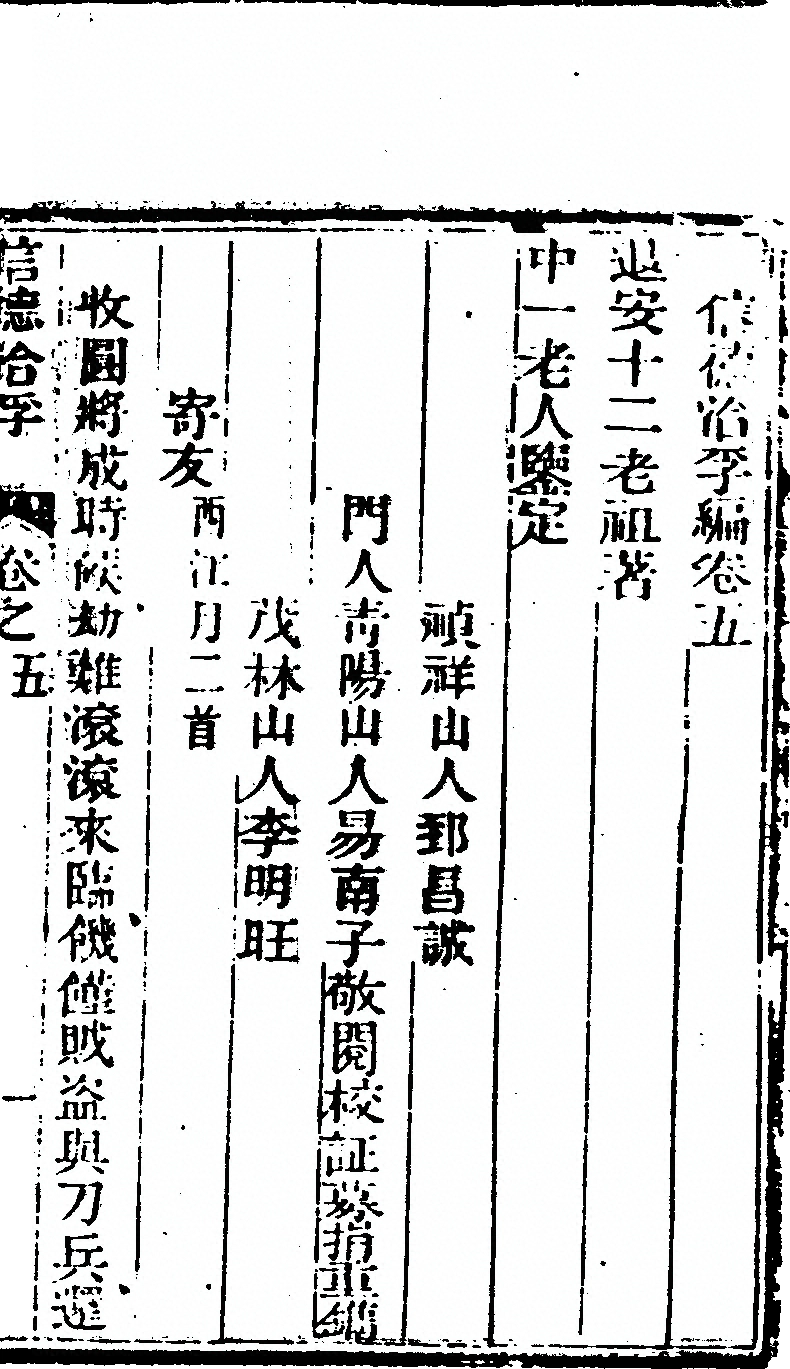 信德洽孚編卷五
退安十二老祖著
中一老人鑒定
禎祥山人郅昌誠
門人青陽山人易南子敬閱校証募捐重鐫
茂林山人李明旺
寄友西江月二首
收圓將成時候劫難滾滾來臨饑饉賊盜與刀兵還
信德洽孚 卷之五 一